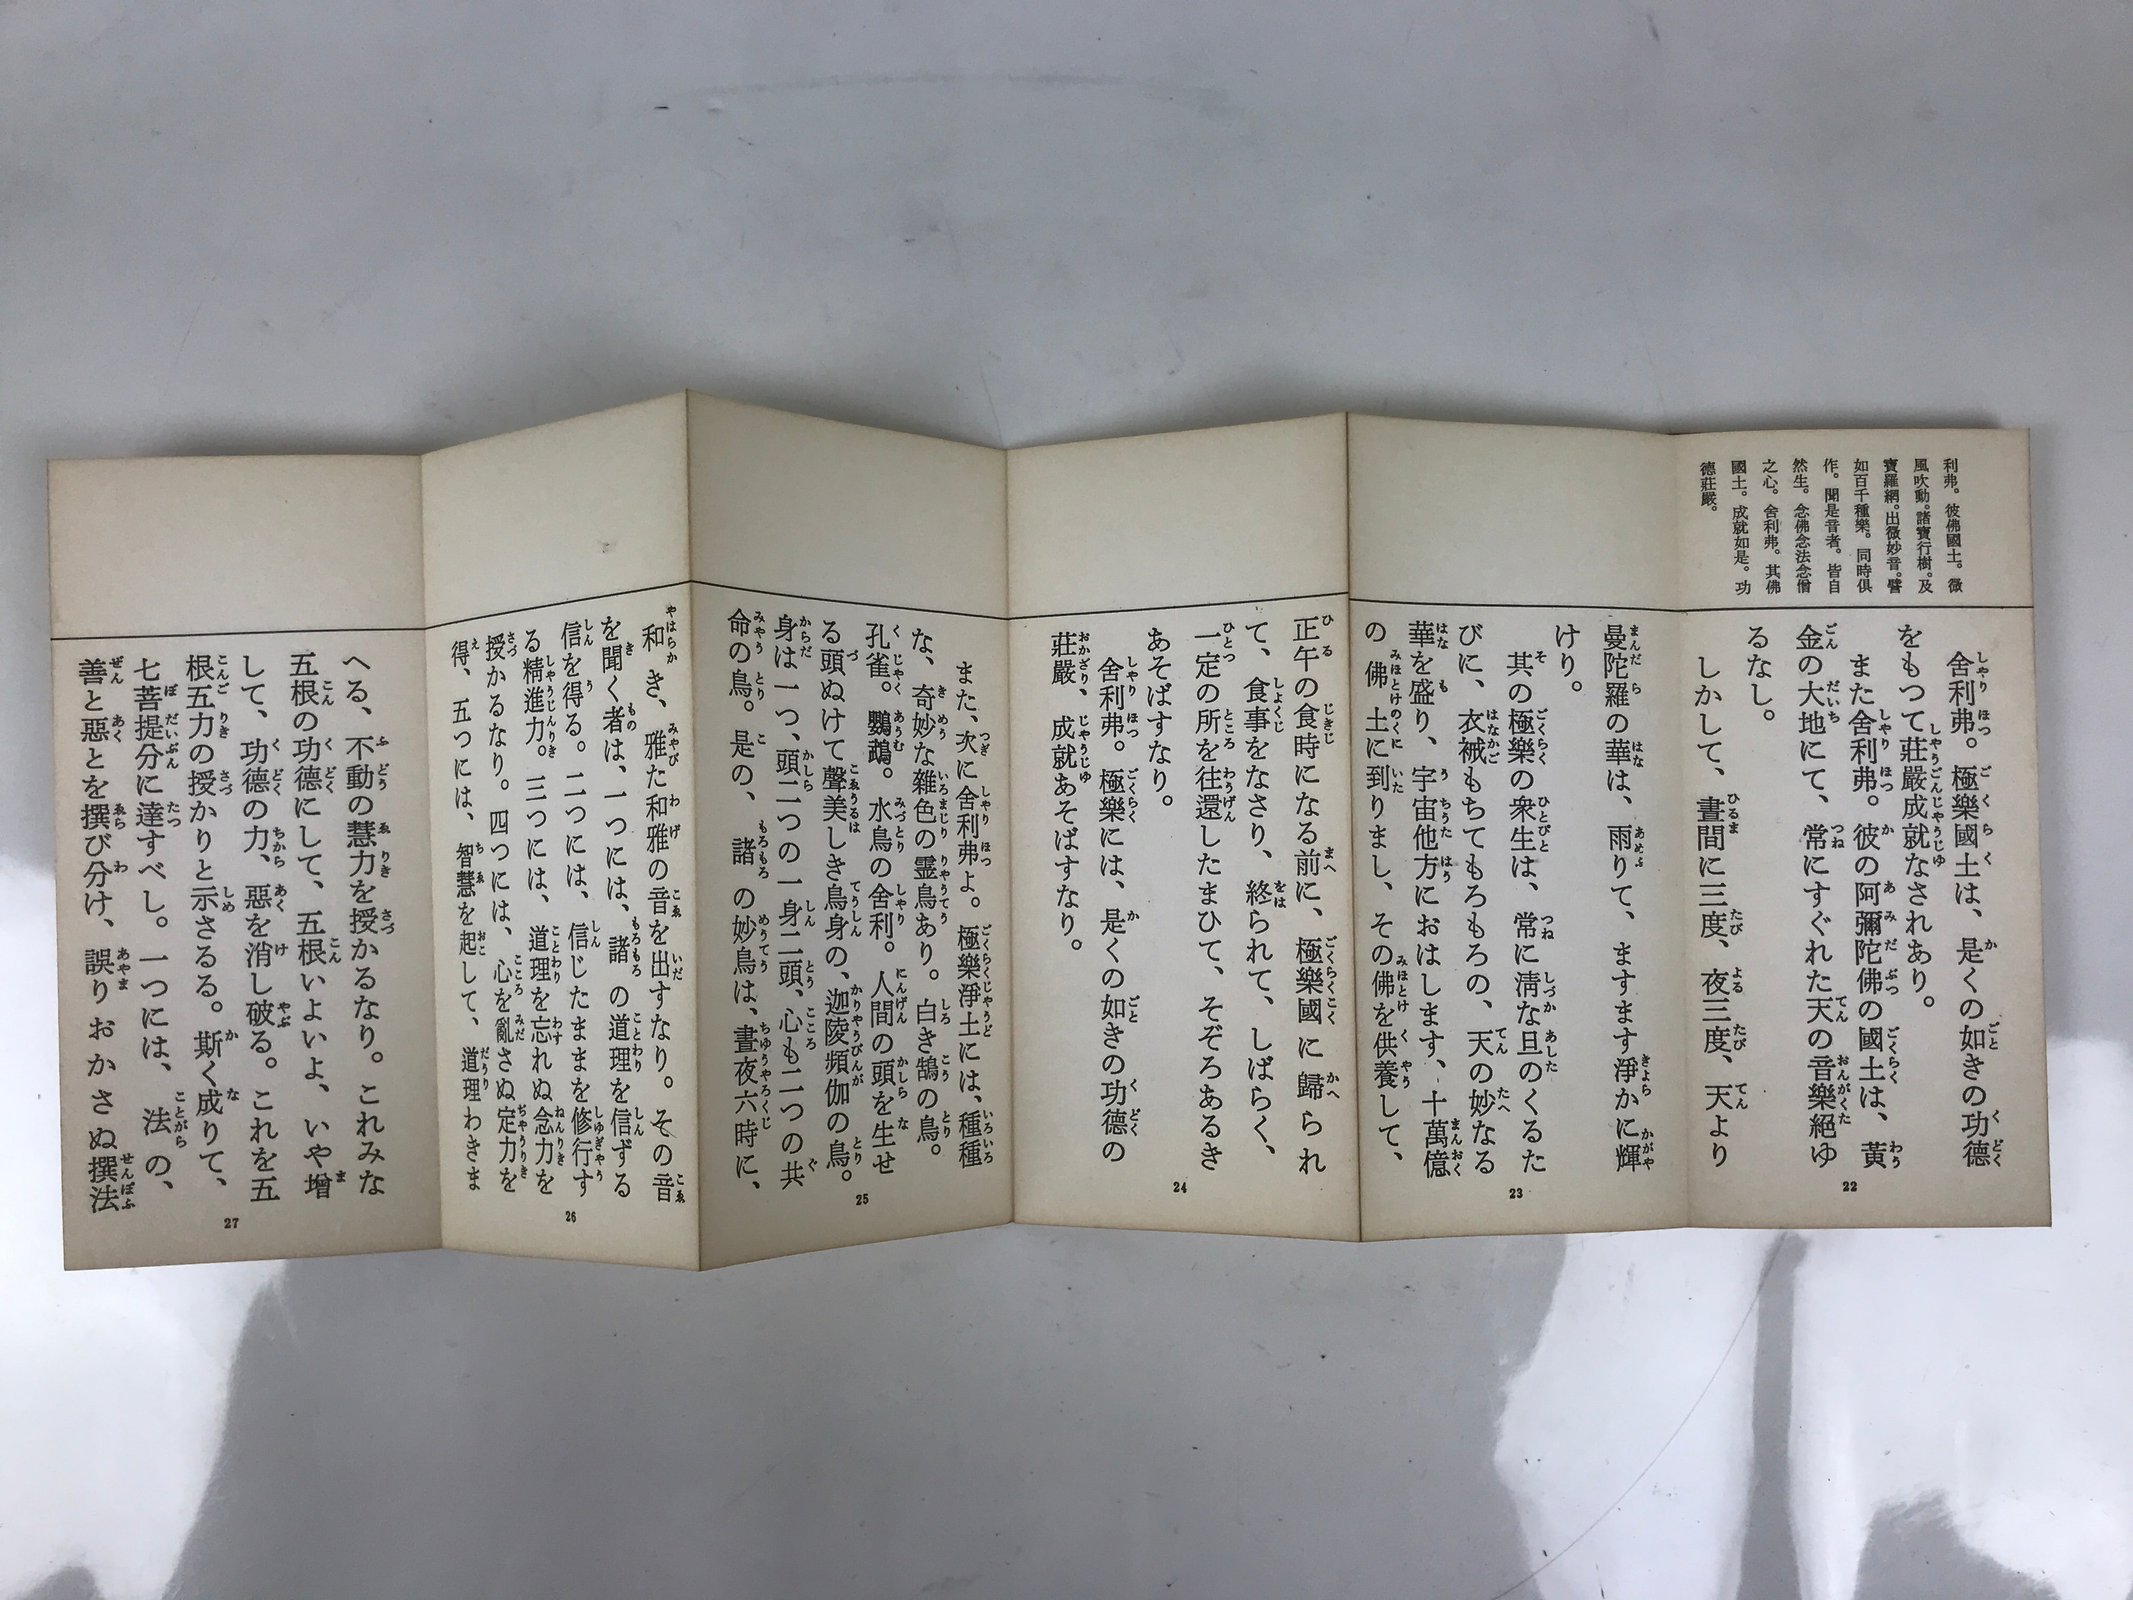 利弗。彼佛國土。微
風吹動。諸寶行樹。及
寶羅網。出微妙音。譬
如百千種樂。同時俱
作。聞是音者。皆自
然生。念佛念法念僧
之心。舍利弗。其佛
國土。成就如是。功
德莊嚴。
舍利弗。極樂國土は、是くの如きの功德
をもつて莊嚴成就なされあり。
また舍利弗。彼の阿彌陀佛の國土は、黃
金の大地にて、常にすぐれた天の音樂絕ゆ
るなし。
しかして、晝間に三度、夜三度、天より
22
曼陀羅の華は、雨りて、ますます淨かに輝
けり。
其の極樂の衆生は、常に淸な旦のくるた
びに、衣裓もちてもろもろの、天の妙なる
華を盛り、宇宙他方におはします、十萬億
の佛土に到りまし、その佛を供養して、
23
正午の食時になる前に、極樂國に歸られ
て、食事をなさり、終られて、しばらく、
一定の所を往還したまひて、そぞろあるき
あそばすなり。
舍利弗。極樂には、是くの如きの功德の
莊嚴、成就あそばすなり。
24
また、次に舍利弗よ。極樂淨土には、種種
な、奇妙な雜色の霊鳥あり。白き鵠の鳥。
孔雀。鸚鵡。水鳥の舍利。人間の頭を生せ
る頭ぬけて聲美しき鳥身の、迦陵頻伽の鳥。
身は一つ、頭二つの一身二頭、心も二つの共
命の鳥。是の、諸の妙鳥は、晝夜六時に、
25
和き、雅た和雅の音を出すなり。その音
を聞く者は、一つには、諸の道理を信ずる
信を得る。二つには、信じたままを修行す
る精進力。三つには、道理を忘れぬ念力を
授かるなり。四つには、心を亂さぬ定力を
得、五つには、智慧を起して、道理わきま
26
へる、不動の慧力を授かるなり。これみな
五根の功德にして、五根いよいよ、いや增
して、功德の力、惡を消し破る。これを五
根五力の授かりと示さるる。斯く成りて、
七菩提分に達すべし。一つには、法の、
善と惡とを撰び分け、誤りおかさぬ撰法
27